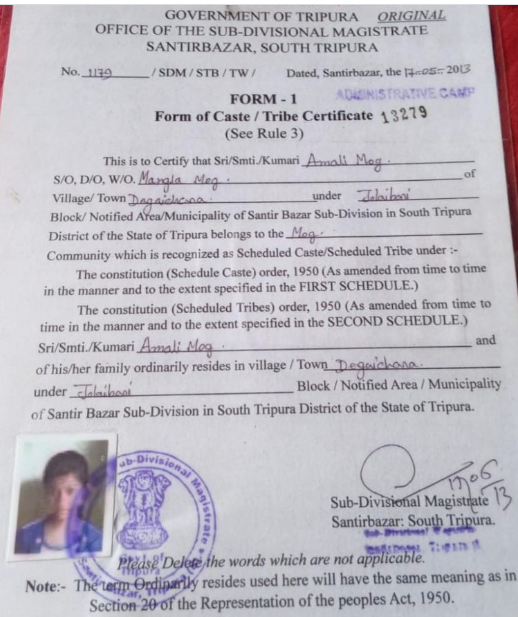 GOVERNMENT OF TRIPURA ORIGINAL
OFFICE OF THE SUB-DIVISIONAL MAGISTRATE
SANTIRBAZAR, SOUTH TRIPURA
No. 1179 / SDM / STB / TW / Dated, Santirbazar, the 17-05- 2013
ADMINISTRATIVE CAMP
FORM - 1
Form of Caste / Tribe Certificate 13279
(See Rule 3)
This is to Certify that Sri/Smti./Kumari Amali Mog.
S/O, D/O, W/O. Mangla Mog. of
Village/ Town Degaichara under Jolaibari
Block/ Notified Area/Municipality of Santir Bazar Sub-Division in South Tripura
District of the State of Tripura belongs to the Mog.
Community which is recognized as Scheduled Caste/Scheduled Tribe under :-
The constitution (Schedule Caste) order, 1950 (As amended from time to time
in the manner and to the extent specified in the FIRST SCHEDULE.)
The constitution (Scheduled Tribes) order, 1950 (As amended from time to
time in the manner and to the extent specified in the SECOND SCHEDULE.)
Sri/Smti./Kumari Amali Mog. and
of his/her family ordinarily resides in village / Town Degaichara.
under Jolaibari Block / Notified Area / Municipality
of Santir Bazar Sub-Division in South Tripura District of the State of Tripura.
Sub-Divisional Magistrate
17/05/13
Sub-Divisional Magistrate
Santirbazar: South Tripura.
Please Delete the words which are not applicable.
Note:- The term Ordinarily resides used here will have the same meaning as in
Section 20 of the Representation of the peoples Act, 1950.